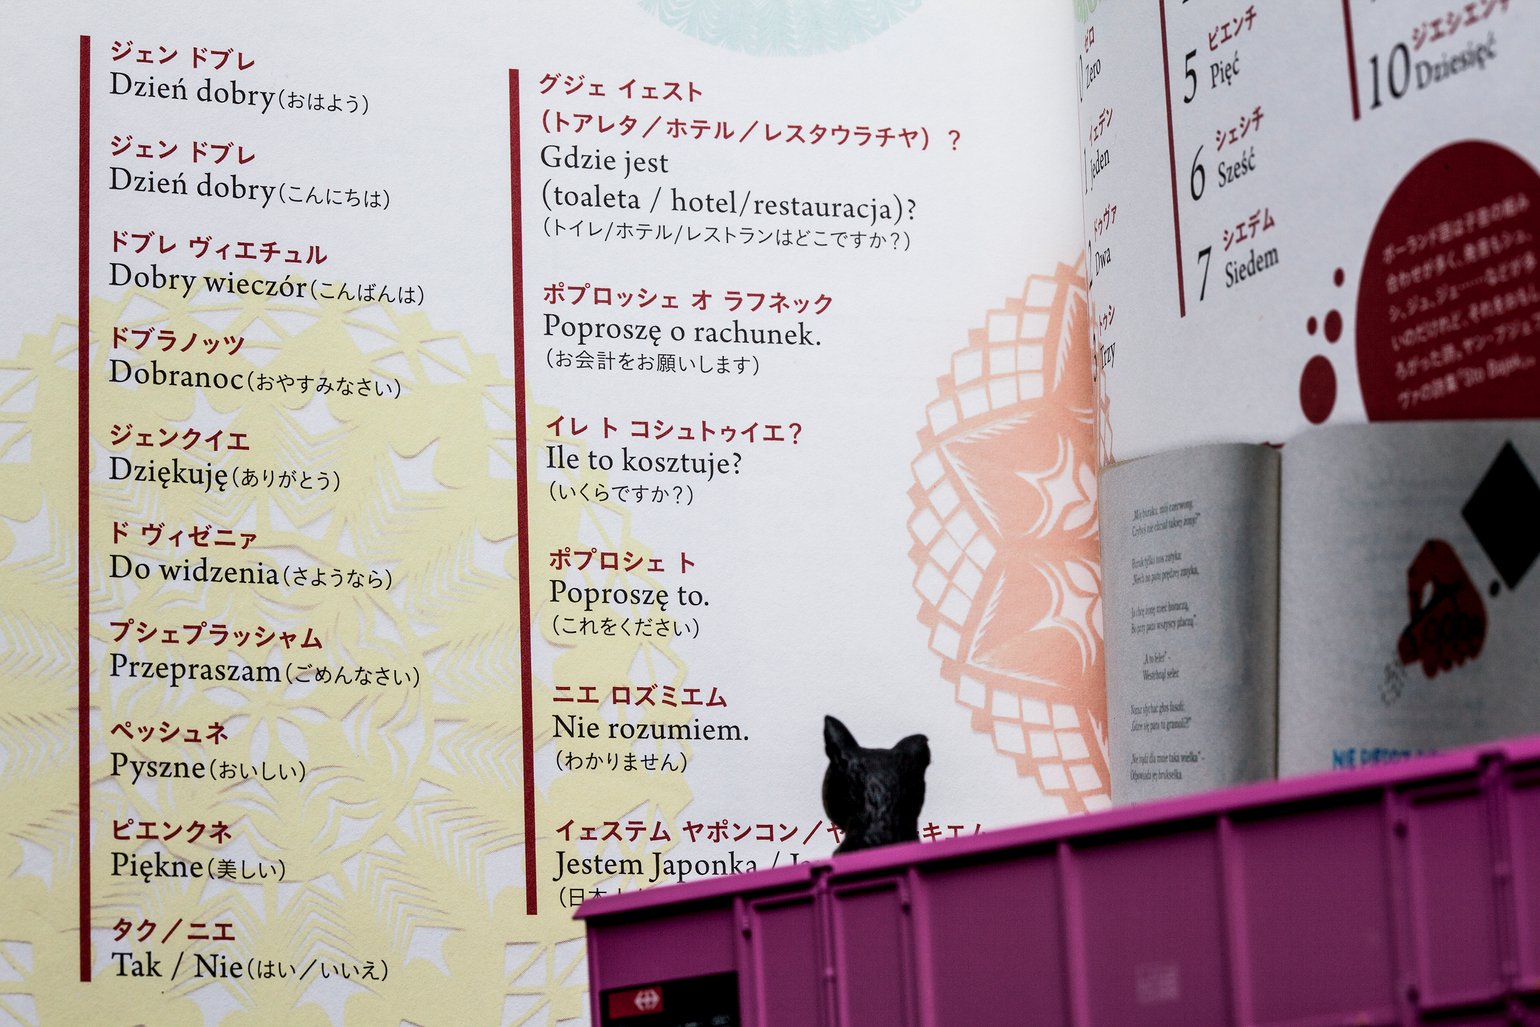 ジェン ドブレ
Dzień dobry(おはよう)
ジェン ドブレ
Dzień dobry(こんにちは)
ドブレ ヴィエチュル
Dobry wieczór(こんばんは)
ドブラノッツ
Dobranoc(おやすみなさい)
ジェンクイエ
Dziękuję(ありがとう)
ド ヴィゼニァ
Do widzenia(さようなら)
プシェプラッシャム
Przepraszam(ごめんなさい)
ペッシュネ
Pyszne(おいしい)
ピエンクネ
Piękne(美しい)
タク／ニエ
Tak / Nie(はい／いいえ)
グジェ イェスト
(トアレタ／ホテル／レスタウラチヤ) ？
Gdzie jest
(toaleta / hotel/restauracja)?
(トイレ/ホテル/レストランはどこですか？)
ポプロッシェ オ ラフネック
Poproszę o rachunek.
(お会計をお願いします)
イレ ト コシュトゥイエ？
Ile to kosztuje?
(いくらですか？)
ポプロシェ ト
Poproszę to.
(これをください)
ニエ ロズミエム
Nie rozumiem.
(わかりません)
イェステム ヤポンコン／
Jestem Japonka /
(日本
ゼロ
0 Zero
イェデン
1 Jeden
ドゥヴァ
Dwa
トゥシ
3 Trzy
ピエンチ
5 Pięć
シェシチ
6 Sześć
シエデム
7 Siedem
ジエシエンチ
10 Dziesięć
ポーランド語は子音の組み
合わせが多く、発音もシュ、
シ、ジュ、ジェ……などが多
いのだけれど、それをおもし
ろがった詩。ヤン・ブジェフ
ヴァの詩集